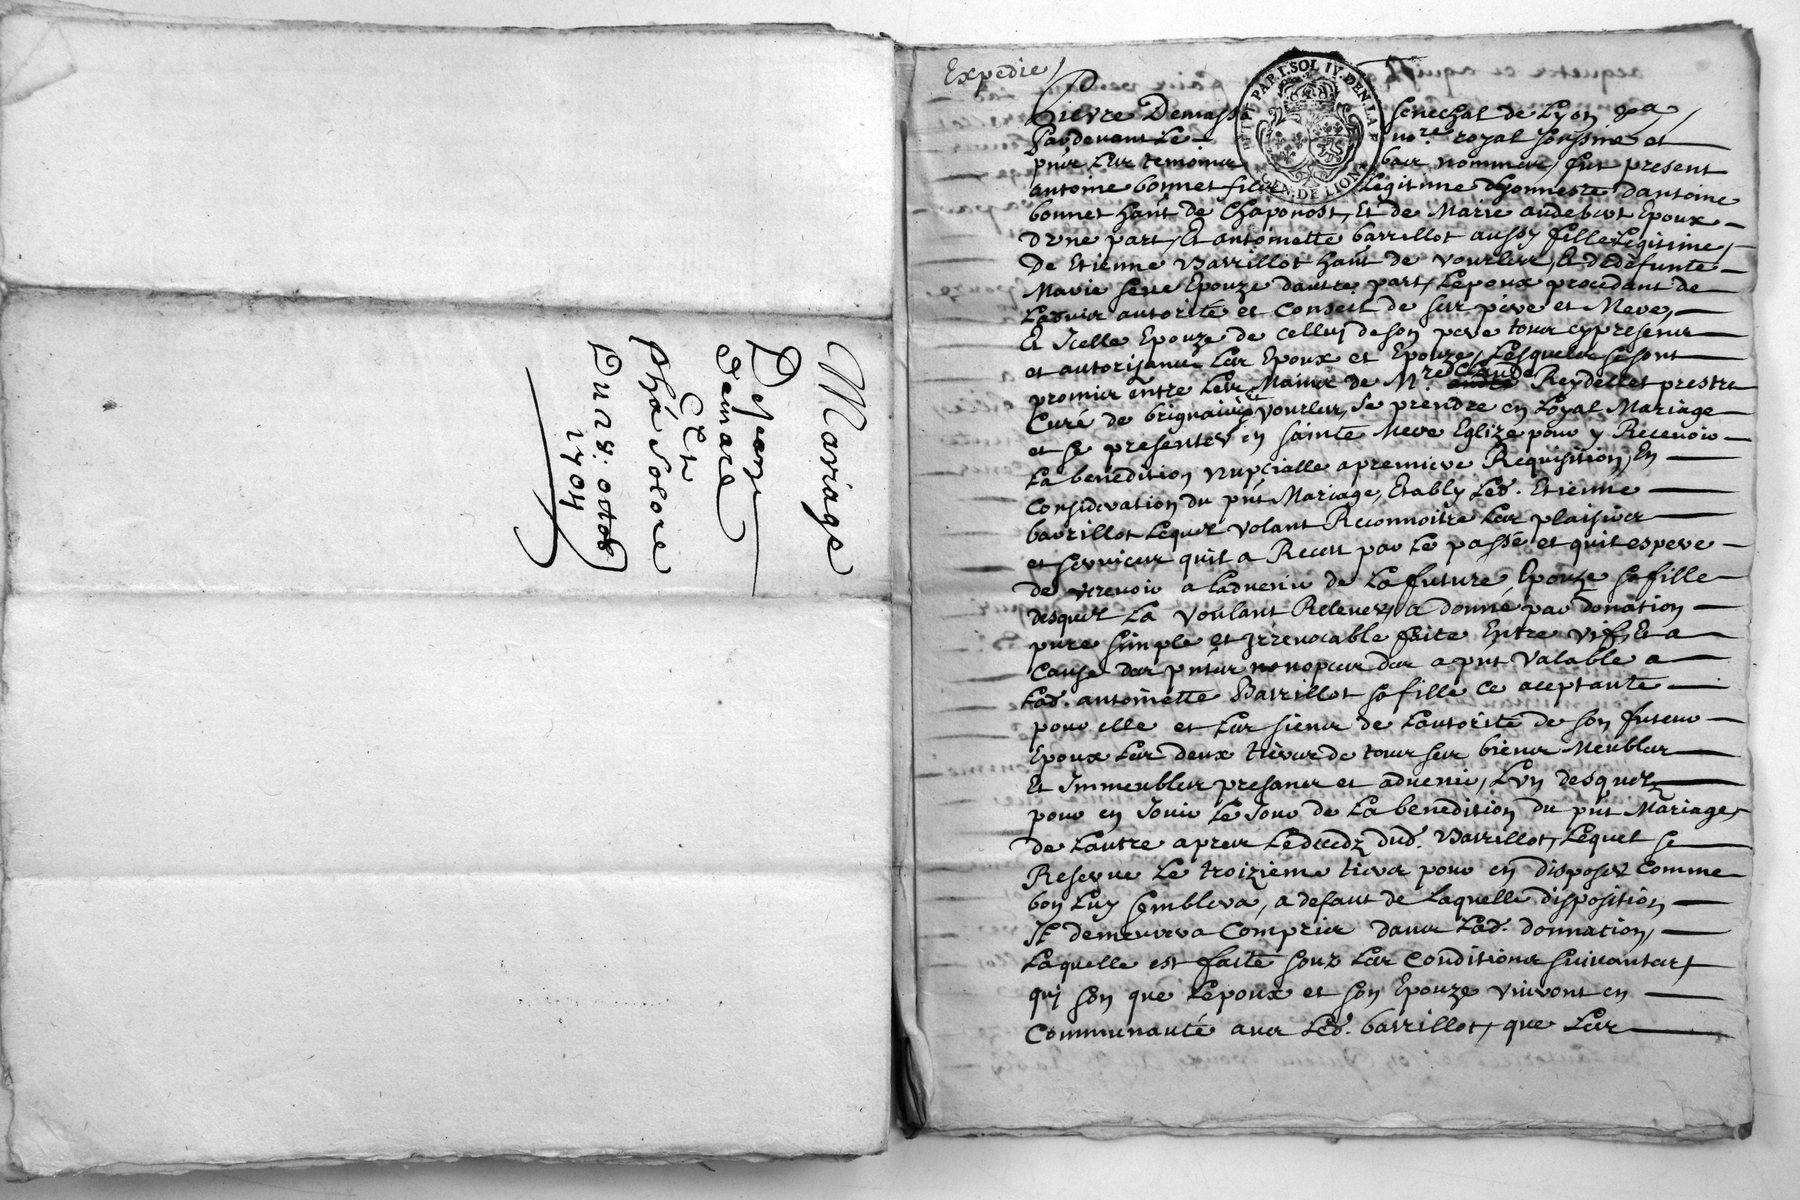 Mariage
De Jean
demare
Et
Du 28: octob
1704
Expedié
PETIT PAP. 1. SOL IV. DEN. LA F
GEN. DE LION
Pierre Demasso Senechal de Lyon &a
Pardevant Le nore. royal soussine et
pñts Les temoins bas nommes, fut present
antoine bonnet fils Legitime d'honneste dantoine
bonnet hañt de Chaponost, Et de Marie audebert Epoux
dvne part, Et antoinette barrillot aussy fille Legitime,
De Etienne Barrillot hañt de vourles, Et dedefunte
Marie seve Epouze dautre part, Lepoux procedant de
Ladvis autorité et Conseil de ses pere et Mere,
Et Icelle Epouze de celluy de son pere tous cypresens
et autorisans Les Epoux et Epouze, Lesquels se sont
promis entre Les Mains de Mre Claude Reydellet prestre
Curé de brignais et vourles, se prendre en Loyal Mariage
et se presenter en sainte Mere Eglize pour y Recevoir
La benedition nupcialle a premiere Requisition, En
Consideration du pñt Mariage, Etably Led. Etienne
barrillot Lequel volant Reconnoitre Les plaisirs
et services quil a Receu par Le passé et quil espere
de recevoir a Ladvenir de La future Epouze sa fille
desquels La voulant Relever, a donné par donation
pure simple et Irrevocable faite Entre vifs, Et a
Cause des pñtes nonopces des a pñt valable a
Lad. antoinette Barrillot sa fille ce aceptante
pour elle et Les siens de Lautorité de son futeur
Epoux Les deux tiers de tous ses biens Meubles
Et Immeubles presans et advenir, Lvn desquels
pour en Jouir Le Jour de La benedition du pñt Mariage,
de Lautre apres Le decedz dud. Barrillot, Lequel se
Reserve Le troizieme tiers pour en disposer Comme
bon Luy semblera, a defaut de Laquelle disposition
Il demeurera Compris dans Lad. donnation,
Laquelle est faite souz Les Conditions suivantes,
quj son que Lepoux et son Epouze vivront en
Communauté avec Led. barrillot, que Les